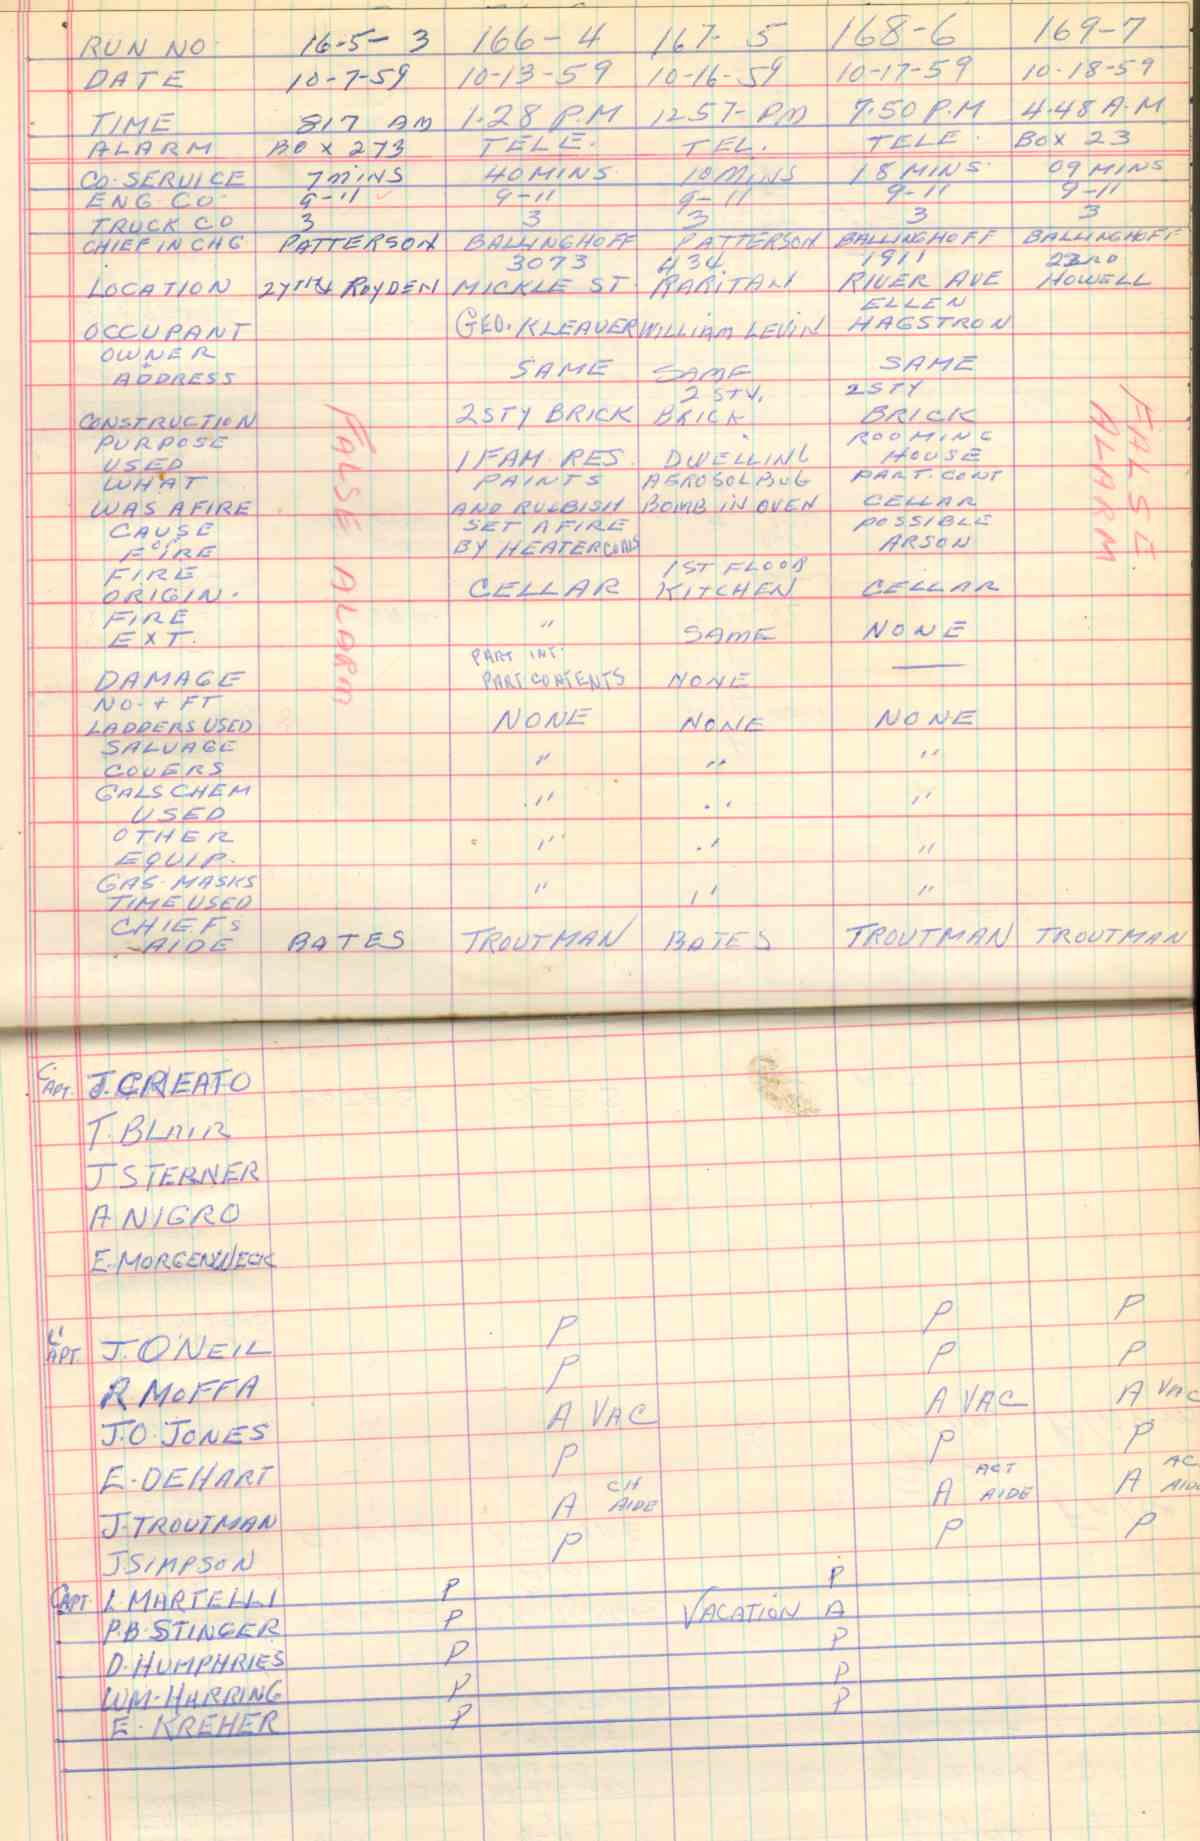 RUN NO 16-5-3 166-4 167-5 168-6 169-7
DATE 10-7-59 10-13-59 10-16-59 10-17-59 10-18-59
TIME 817 AM 1.28 P.M 12.57- PM 7.50 P.M 4.48 A.M
ALARM BOX 273 TELE. TEL. TELE. BOX 23
CO. SERVICE 7 MINS 40 MINS. 10 MINS 18 MINS. 09 MINS
ENG CO. 9-11 9-11 9-11 9-11 9-11
TRUCK CO 3 3 3 3 3
CHIEF IN CHG PATTERSON BALLINGHOFF PATTERSON BALLINGHOFF BALLINGHOFF
3073 434 1911 23RD
LOCATION 27TH & ROYDEN MICKLE ST. RARITAN RIVER AVE HOWELL
ELLEN
OCCUPANT GEO. KLEAVER WILLIAM LEVIN HAGSTRON
OWNER
+
ADDRESS SAME SAME SAME
2 STY. 2 STY
CONSTRUCTION 2 STY BRICK BRICK BRICK
PURPOSE ROOMING
USED 1 FAM. RES. DWELLING HOUSE
WHAT PAINTS AEROSOL BUG PART. CONT
WAS AFIRE AND RUBBISH BOMB IN OVEN CELLAR
CAUSE SET AFIRE POSSIBLE
OF
FIRE BY HEATER COALS ARSON
FIRE 1ST FLOOR
ORIGIN. CELLAR KITCHEN CELLAR
FIRE
EXT. " SAME NONE
PART INT.
DAMAGE PART CONTENTS NONE —
NO. + FT
LADDERS USED NONE NONE NONE
SALVAGE
COVERS " " "
GALS CHEM
USED " " "
OTHER
EQUIP. " " "
GAS. MASKS
TIME USED " " "
CHIEFS
AIDE BATES TROUTMAN BATES TROUTMAN TROUTMAN
FALSE ALARM
FALSE
ALARM
CAPT. J. CREATO
T. BLAIR
J STERNER
A NIGRO
E. MORGENWECK
CAPT. J. O'NEIL P P P
R MOFFA P P P
J.O. JONES A VAC A VAC A VAC
E. DEHART P P P
J. TROUTMAN A CH AIDE A ACT AIDE A
J SIMPSON P P P
CAPT. L. MARTELLI P P
P.B. STINGER P VACATION A
D. HUMPHRIES P P
WM. HARRING P P
E. KREHER P P